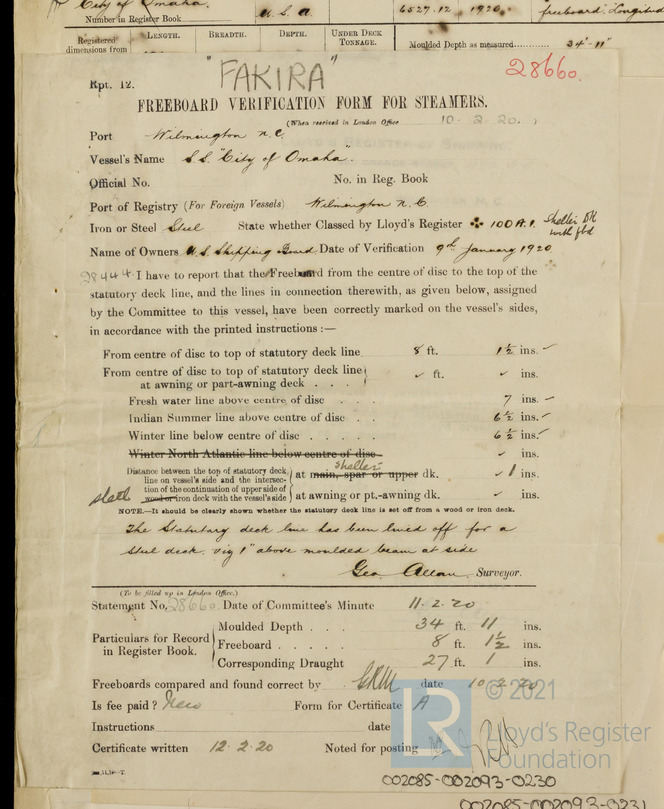 City of Omaha.
U.S.A.
6527.12 1920
freeboard. Longitud
Number in Register Book
Registered dimensions from
LENGTH. BREADTH. DEPTH. UNDER DECK TONNAGE.
Moulded Depth as measured 34'-11"
Rpt. 12.
"FAKIRA"
28660.
FREEBOARD VERIFICATION FORM FOR STEAMERS.
(When received in London Office 10-2-20.)
Port Wilmington N.C.
Vessel's Name S.S. "City of Omaha".
Official No. No. in Reg. Book
Port of Registry (For Foreign Vessels) Wilmington N.C.
Iron or Steel Steel State whether Classed by Lloyd's Register ✠ 100 A.1. Shelter Dk with fbd
Name of Owners U.S. Shipping Board Date of Verification 9th January 1920
28444 I have to report that the Freeboard from the centre of disc to the top of the
statutory deck line, and the lines in connection therewith, as given below, assigned
by the Committee to this vessel, have been correctly marked on the vessel's sides,
in accordance with the printed instructions :—
From centre of disc to top of statutory deck line 8 ft. 1½ ins. ✓
From centre of disc to top of statutory deck line
at awning or part-awning deck . . . ✓ ft. ✓ ins.
Fresh water line above centre of disc . . . 7 ins. ✓
Indian Summer line above centre of disc . . 6½ ins. ✓
Winter line below centre of disc . . . . . 6½ ins. ✓
Winter North Atlantic line below centre of disc ✓ ins.
Distance between the top of statutory deck
line on vessel's side and the intersec-
tion of the continuation of upper side of
wood or iron deck with the vessel's side
steel
shelter
at main, spar or upper dk. ✓ 1 ins.
at awning or pt.-awning dk. ✓ ins.
NOTE.—It should be clearly shown whether the statutory deck line is set off from a wood or iron deck.
The Statutory deck line has been lined off for a
steel deck. viz 1" above moulded beam at side
Geo Allan Surveyor.
(To be filled up in London Office.)
Statement No. 28660 Date of Committee's Minute 11.2.20
Particulars for Record in Register Book.
Moulded Depth . . . 34 ft. 11 ins.
Freeboard . . . . . 8 ft. 1½ ins.
Corresponding Draught 27 ft. 1 ins.
Freeboards compared and found correct by date 10.2.20
Is fee paid? New Form for Certificate A
Instructions date
Certificate written 12.2.20 Noted for posting
© 2021
LR
Lloyd's Register
Foundation
002085-002093-0230
002085-002093-0231